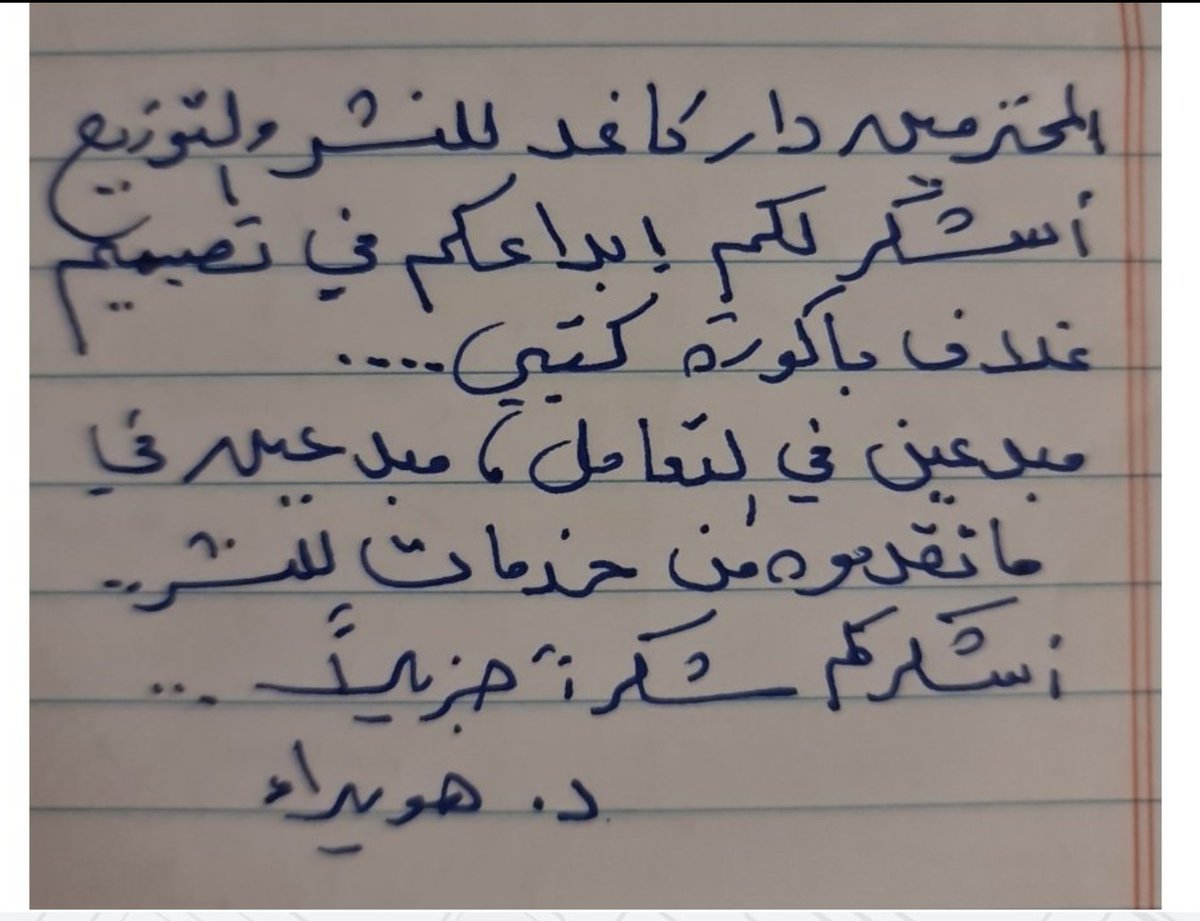 المحترمين دار كاغد للنشر والتوزيع
أشكر لكم إبداعكم في تصميم
غلاف باكورة كتبي....
مبدعين في التعامل، مبدعين في
ما تقدموه من خدمات للنشر..
أشكركم شكراً جزيلاً ...
د. هويراء